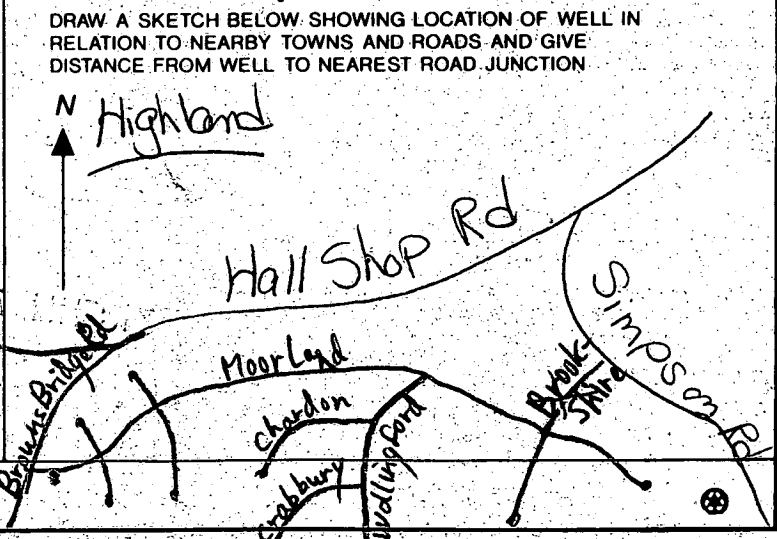 DRAW A SKETCH BELOW SHOWING LOCATION OF WELL IN
RELATION TO NEARBY TOWNS AND ROADS AND GIVE
DISTANCE FROM WELL TO NEAREST ROAD JUNCTION
N
Highland
Hall Shop Rd
Simpson Rd
Browns Bridge Rd
Moorland
Brook-
Shire
Chardon
Crabbury